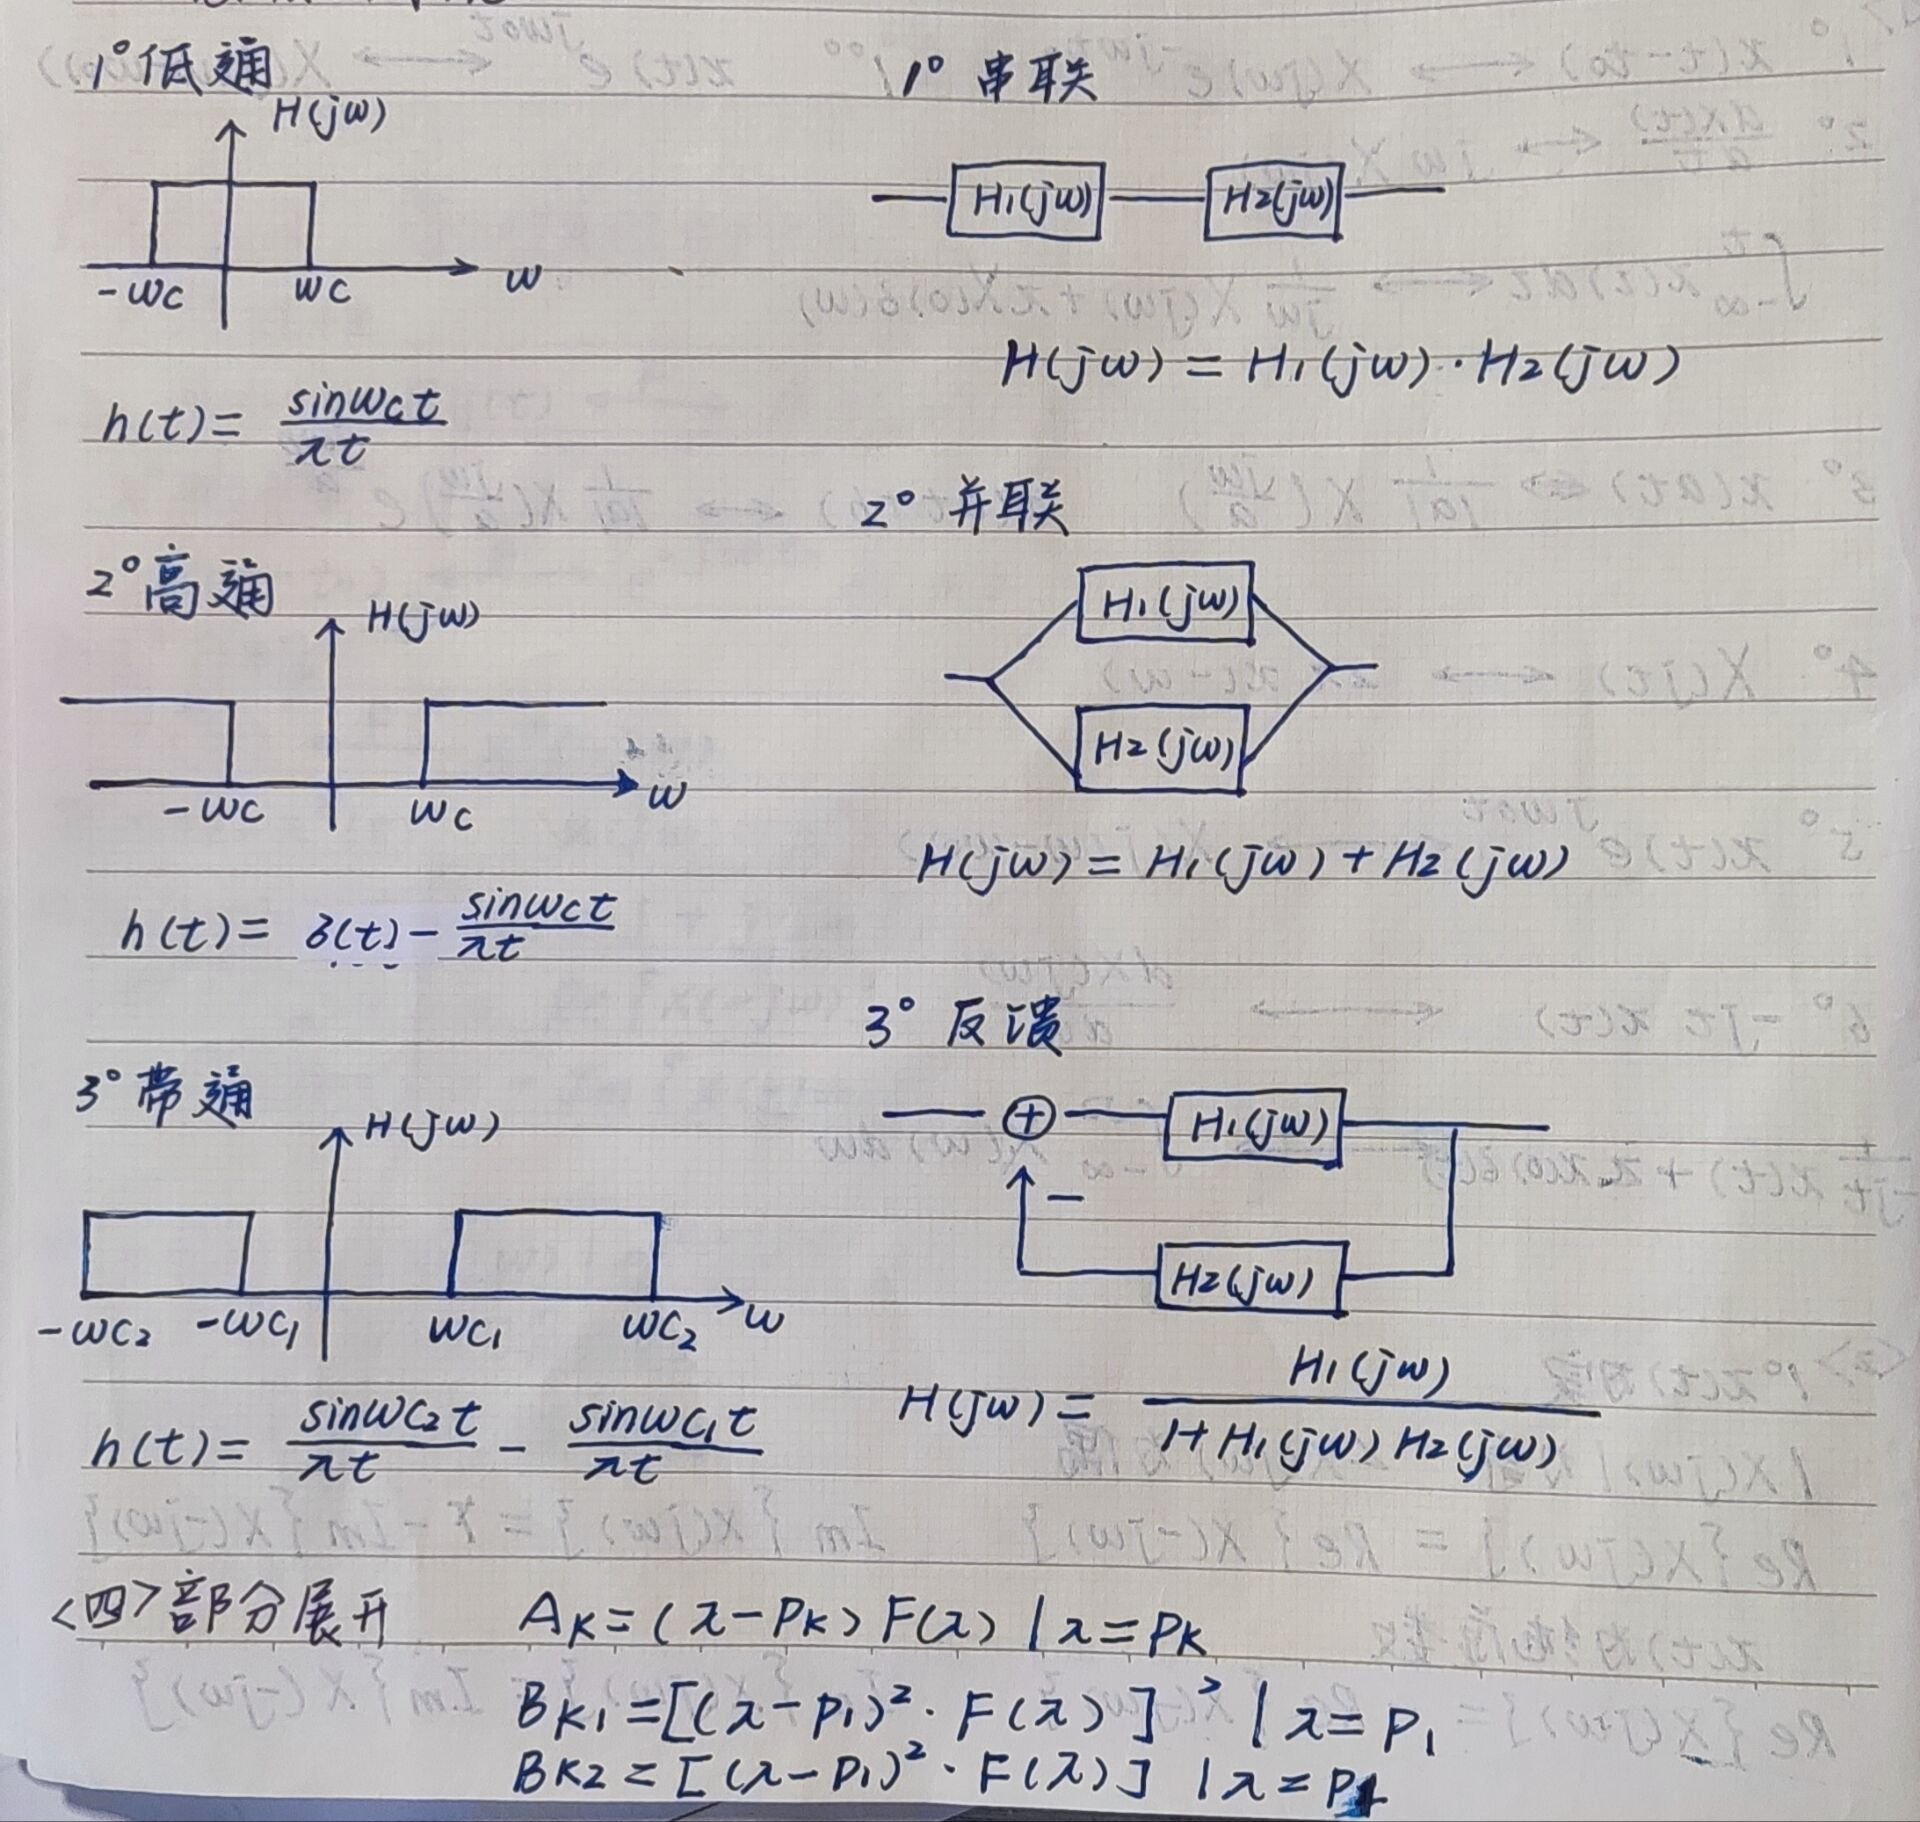 1° 低通
H(jω)
-ωc ωc ω
h(t) = sinωct / πt
2° 高通
H(jω)
-ωc ωc ω
h(t) = δ(t) - sinωct / πt
3° 带通
H(jω)
-ωc₂ -ωc₁ ωc₁ ωc₂ ω
h(t) = sinωc₂t / πt - sinωc₁t / πt
1° 串联
H₁(jω) H₂(jω)
H(jω) = H₁(jω) · H₂(jω)
2° 并联
H₁(jω)
H₂(jω)
H(jω) = H₁(jω) + H₂(jω)
3° 反馈
+ H₁(jω)
-
H₂(jω)
H(jω) = H₁(jω) / 1+H₁(jω)H₂(jω)
<四>部分展开 Aκ = (λ-Pκ) F(λ) | λ=Pκ
Bκ₁ = [(λ-P₁)² · F(λ)]' | λ=P₁
Bκ₂ = [(λ-P₁)² · F(λ)] | λ=P₁